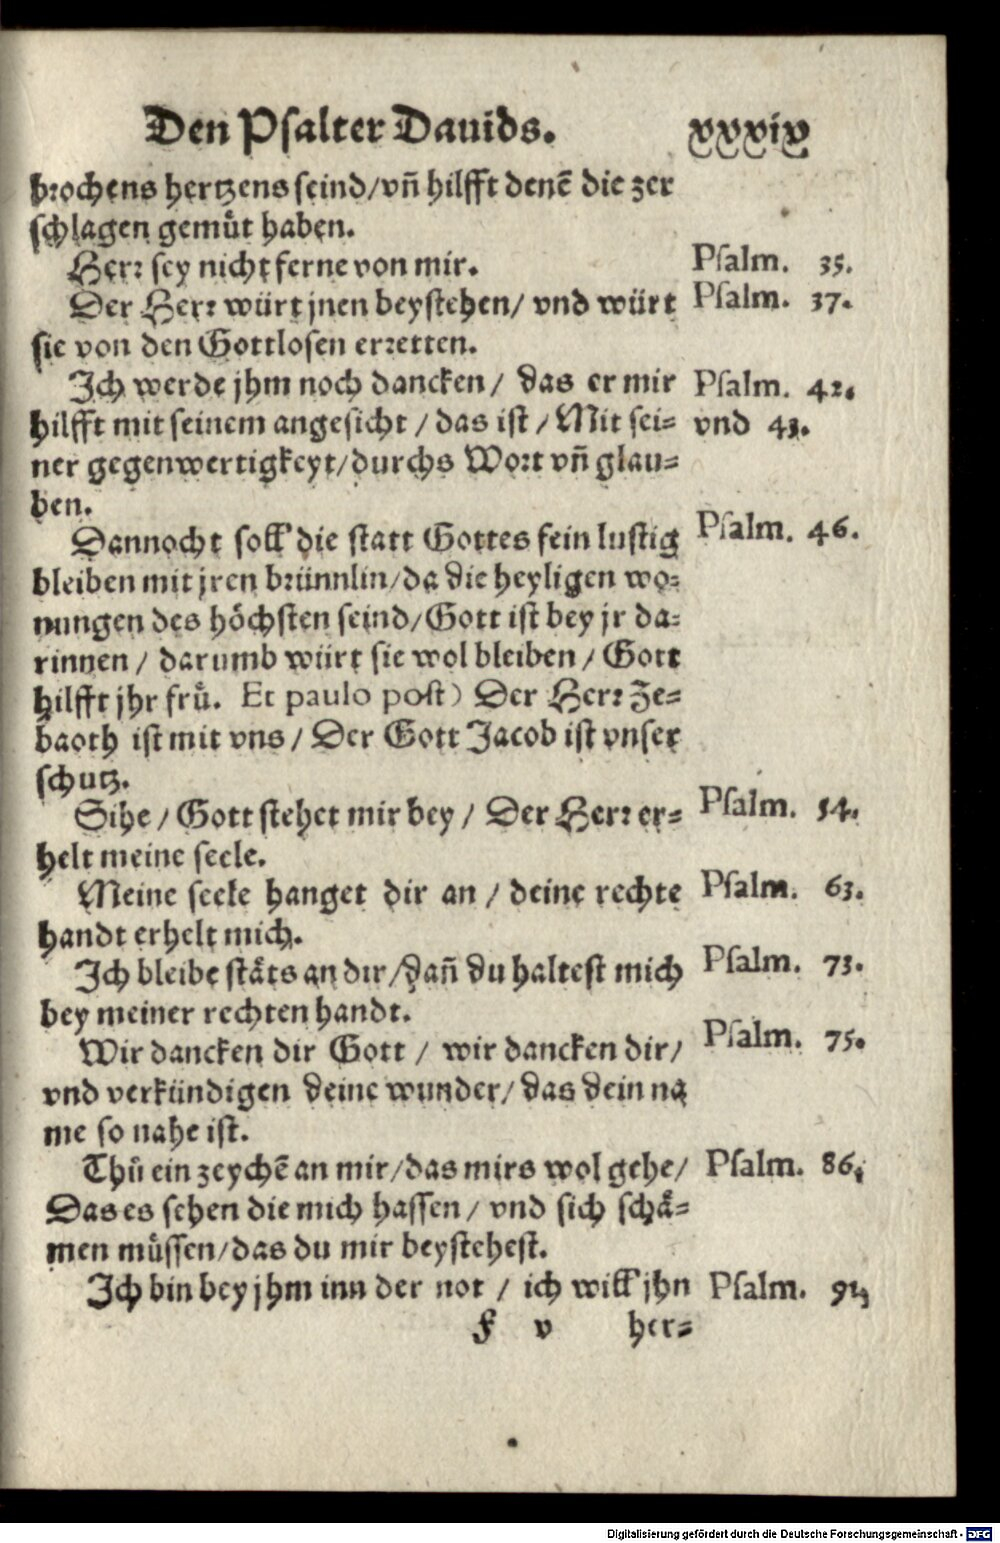 Den Psalter Dauids. xxxix
brochens hertzens seind/vñ hilfft denẽ die zer
schlagen gemuͤt haben.
Herr sey nicht ferne von mir. Psalm. 35.
Der Herr würt jnen beystehen/ vnd würt Psalm. 37.
sie von den Gottlosen erretten.
Ich werde jhm noch dancken/ das er mir Psalm. 42.
hilfft mit seinem angesicht/das ist/Mit sei= vnd 43.
ner gegenwertigkeyt/durchs Wort vñ glau=
ben.
Dannocht soll die statt Gottes fein lustig Psalm. 46.
bleiben mit jren brünnlin/da die heyligen wo=
nungen des höchsten seind/Gott ist bey jr da=
rinnen/ darumb würt sie wol bleiben/ Gott
hilfft jhr fruͤ. Et paulo post) Der Herr Ze=
baoth ist mit vns/ Der Gott Jacob ist vnser
schutz.
Sihe/Gott stehet mir bey/ Der Herr er= Psalm. 54.
helt meine seele.
Meine seele hanget dir an/ deine rechte Psalm. 63.
handt erhelt mich.
Ich bleibe stäts an dir/dañ du haltest mich Psalm. 73.
bey meiner rechten handt.
Wir dancken dir Gott/ wir dancken dir/ Psalm. 75.
vnd verkündigen deine wunder/das dein na
me so nahe ist.
Thuͤ ein zeychẽ an mir/das mirs wol gehe/ Psalm. 86.
Das es sehen die mich hassen/ vnd sich schä=
men muͤssen/das du mir beystehest.
Ich bin bey jhm inn der not/ ich will jhn Psalm. 91.
F v her=
Digitalisierung gefördert durch die Deutsche Forschungsgemeinschaft - DFG